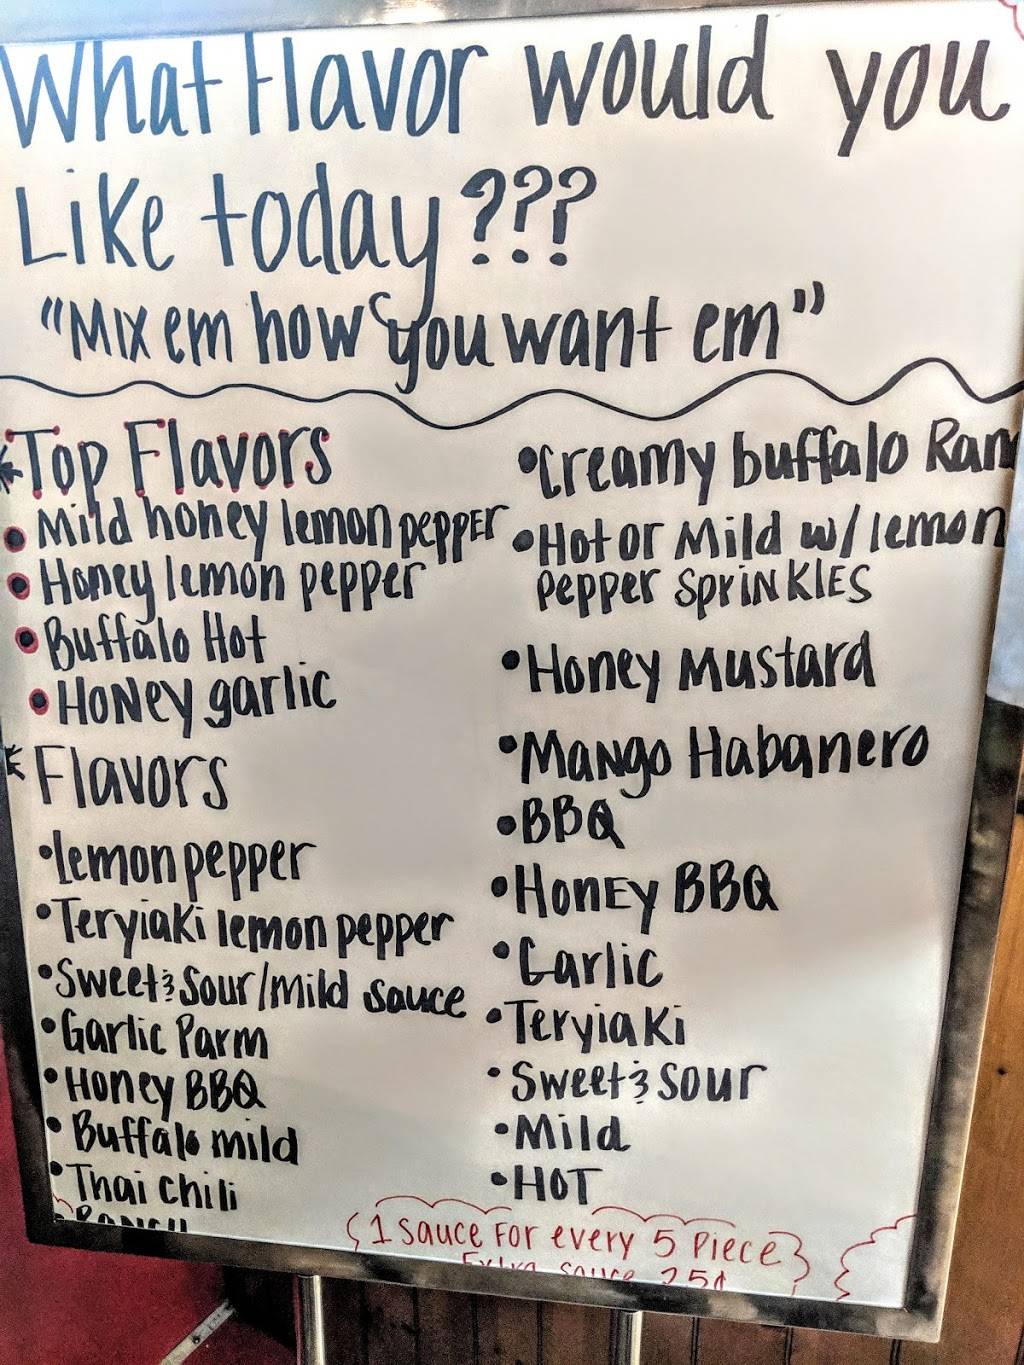 What Flavor would you
Like today???
"Mix em how you want em"
Top Flavors
• Mild honey lemon pepper
• Honey lemon pepper
• Buffalo Hot
• Honey garlic
Flavors
• lemon pepper
• Teryiaki lemon pepper
• Sweet & Sour/mild sauce
• Garlic Parm
• Honey BBQ
• Buffalo mild
• Thai chili
Ranch
• Creamy buffalo Ran
• Hot or Mild w/ lemon
pepper sprinkles
• Honey Mustard
• Mango Habanero
• BBQ
• Honey BBQ
• Garlic
• Teryiaki
• Sweet & Sour
• Mild
• HOT
1 sauce for every 5 piece
Extra sauce 25¢